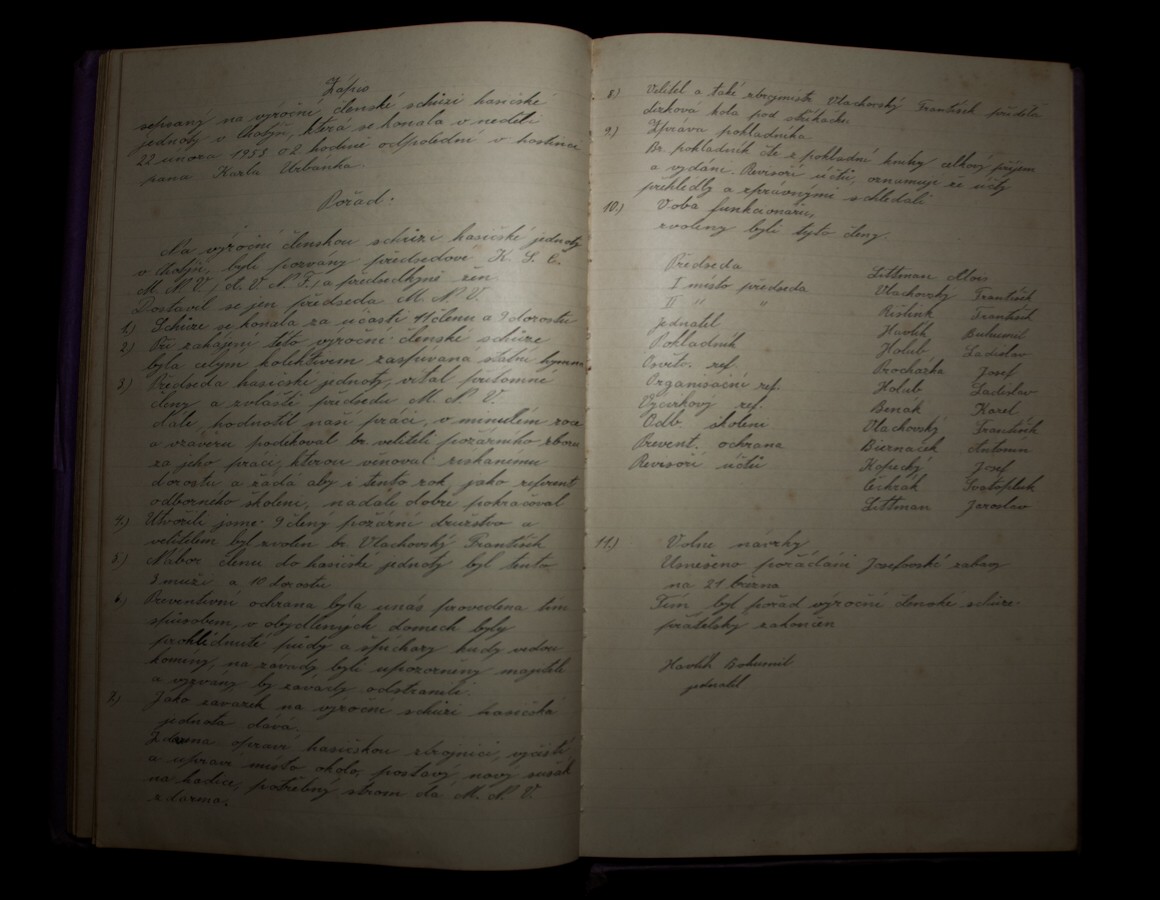 Zápis
sepsaný na výroční členské schůzi hasičské
jednoty v Choťyni, která se konala v neděli
22 února 1953 o 2 hodině odpolední v hostinci
pana Karla Urbánka.
Pořad.
Na výroční členskou schůzi hasičské jednoty
v Choťyni, byli pozvany předsedové K. S. Č.
M. N. V, č. V. N. F, a předsedkyně žen
Dostavil se jen předseda M. N. V.
1.) Schůze se konala za účasti 11 členu a 9 dorostu
2.) Při zahajeni této výroční členské schůze
byla celým kolektivem zaspívana statní hymna
3.) Předseda hasičské jednoty, vital přítomné
členy, a zvláště předsedu M. N. V.
Dále, hodnotil naší práci, v minulém roce
a vzavěru poděkoval br. veliteli požárního sboru
za jeho práci, kterou věnoval získanímu
dorostu a žádá aby i tento rok, jako referent
odborného školeni, nadále dobře pokračoval
4.) Utvořili jsme 9 členy požární družstvo a
velitelem byl zvolen br. Vlachovský František
5.) Nábor členu do hasičské jednoty byl tento
3 muži a 10 dorostu
6.) Preventivní ochrana byla unás provedena tím
způsobem, v obydlených domech byly
prohlédnuté půdy a špichary kudy vedou
komíny, na závady byli upozorněny majitelé
a vyzvány by závady odstranili.
7.) Jako závazek na výroční schůzi hasičská
jednota dává.
Zdarma opraví hasičskou zbrojnici, vyčistí
a upraví místo okolo, postavý nový sušák
na hadice, potřebný strom dá M. N. V.
zdarma.
8.) Velitel a také zbrojmistr Vlachovský František přidělá
dírková kola pod stříkačku.
9.) Zpráva pokladníka
Br. pokladník čte z pokladní knihy celkový příjem
a vydání. Revisoři účtů, oznamuje že účty
přehledly a správnými schledali
10.) Volba funkcionářu,
zvoleny byli tyto členy.
Předseda Littman Alois
I místo předseda Vlachovský František
II " " Rišlink František
Jednatel Havlík Buhumil
Pokladník Holub Ladislav
Osvěto. ref. Procházka Josef
Organisační ref. Holub Ladislav
Výcvikový ref. Benák Karel
Odb. školeni Vlachovský František
Prevent. ochrana Biernacek Antonin
Revisoři účtů Kopecký Josef
Čechrák Svatopluk
Littman Jaroslav
11.) Volne návrhy
Usnešeno pořádání Josefovské zabavy
na 21 března
Tím byl pořad výroční členské schůze
přátelsky zakončen
Havlík Bohumil
jednatel